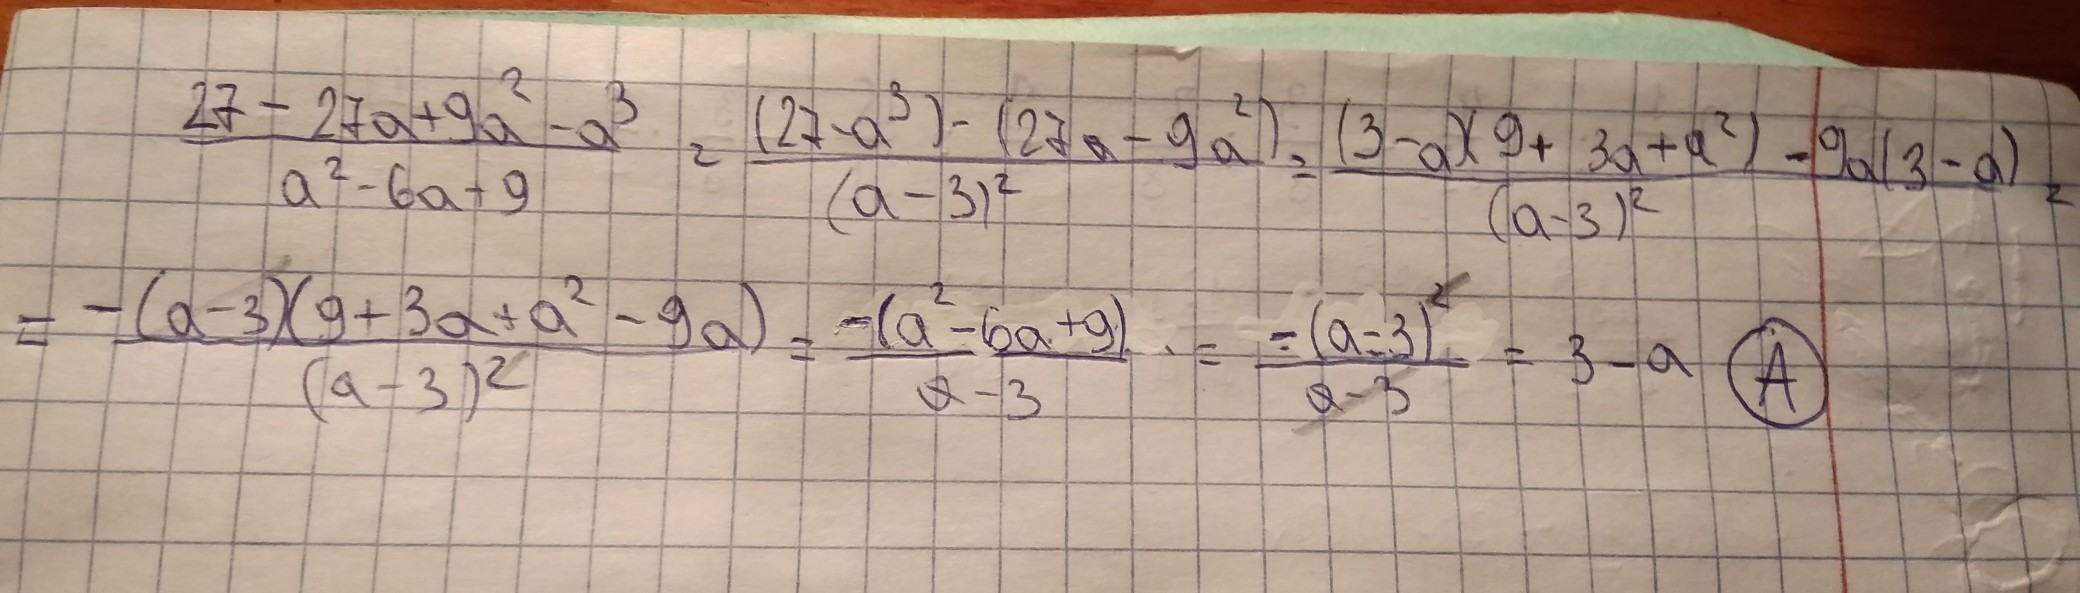 (27 - 27a + 9a² - a³)/(a² - 6a + 9) = ((27 - a³) - (27a - 9a²))/(a - 3)² = ((3 - a)(9 + 3a + a²) - 9a(3 - a))/(a - 3)² =
= (-(a - 3)(9 + 3a + a² - 9a))/(a - 3)² = (-(a² - 6a + 9))/(a - 3) = (-(a - 3)²)/(a - 3) = 3 - a A